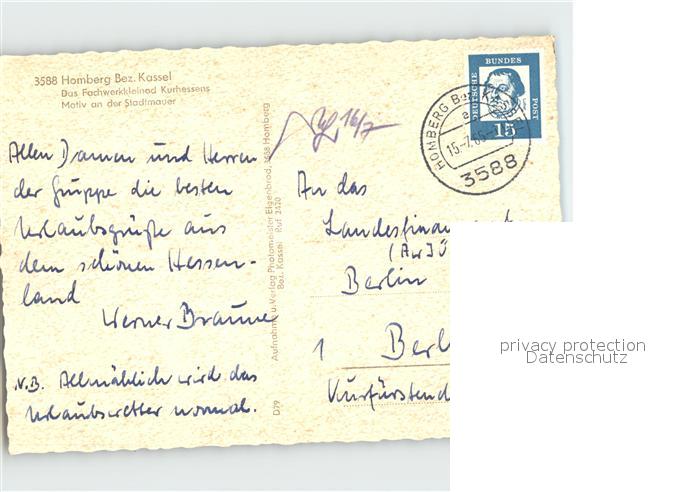 3588 Homberg Bez. Kassel
Das Fachwerkkleinod Kurhessens
Motiv an der Stadtmauer
Allen Damen und Herren
der Gruppe die besten
Urlaubsgrüße aus
dem schönen Hessen-
land
Werner Braune
N.B. Allmählich wird das
Urlaubswetter normal.
Aufnahme u. Verlag Photomeister Eigenbrod, 3588 Homberg
Bez. Kassel. Ruf 2420
D79
16/7
DEUTSCHE BUNDES POST
15
HOMBERG Bez. Kassel
15.-7.65
3588
An das
Landesfinanz
Berlin
1 Berl
Kurfürstend
privacy protection
Datenschutz